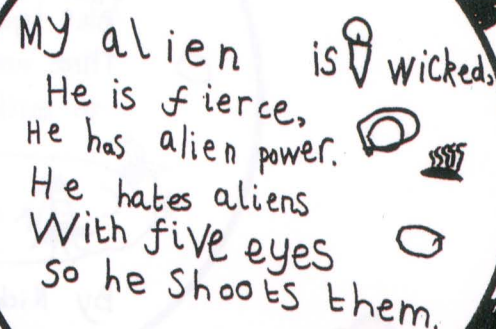 My alien is wicked,
He is fierce,
He has alien power.
He hates aliens
With five eyes
So he shoots them.